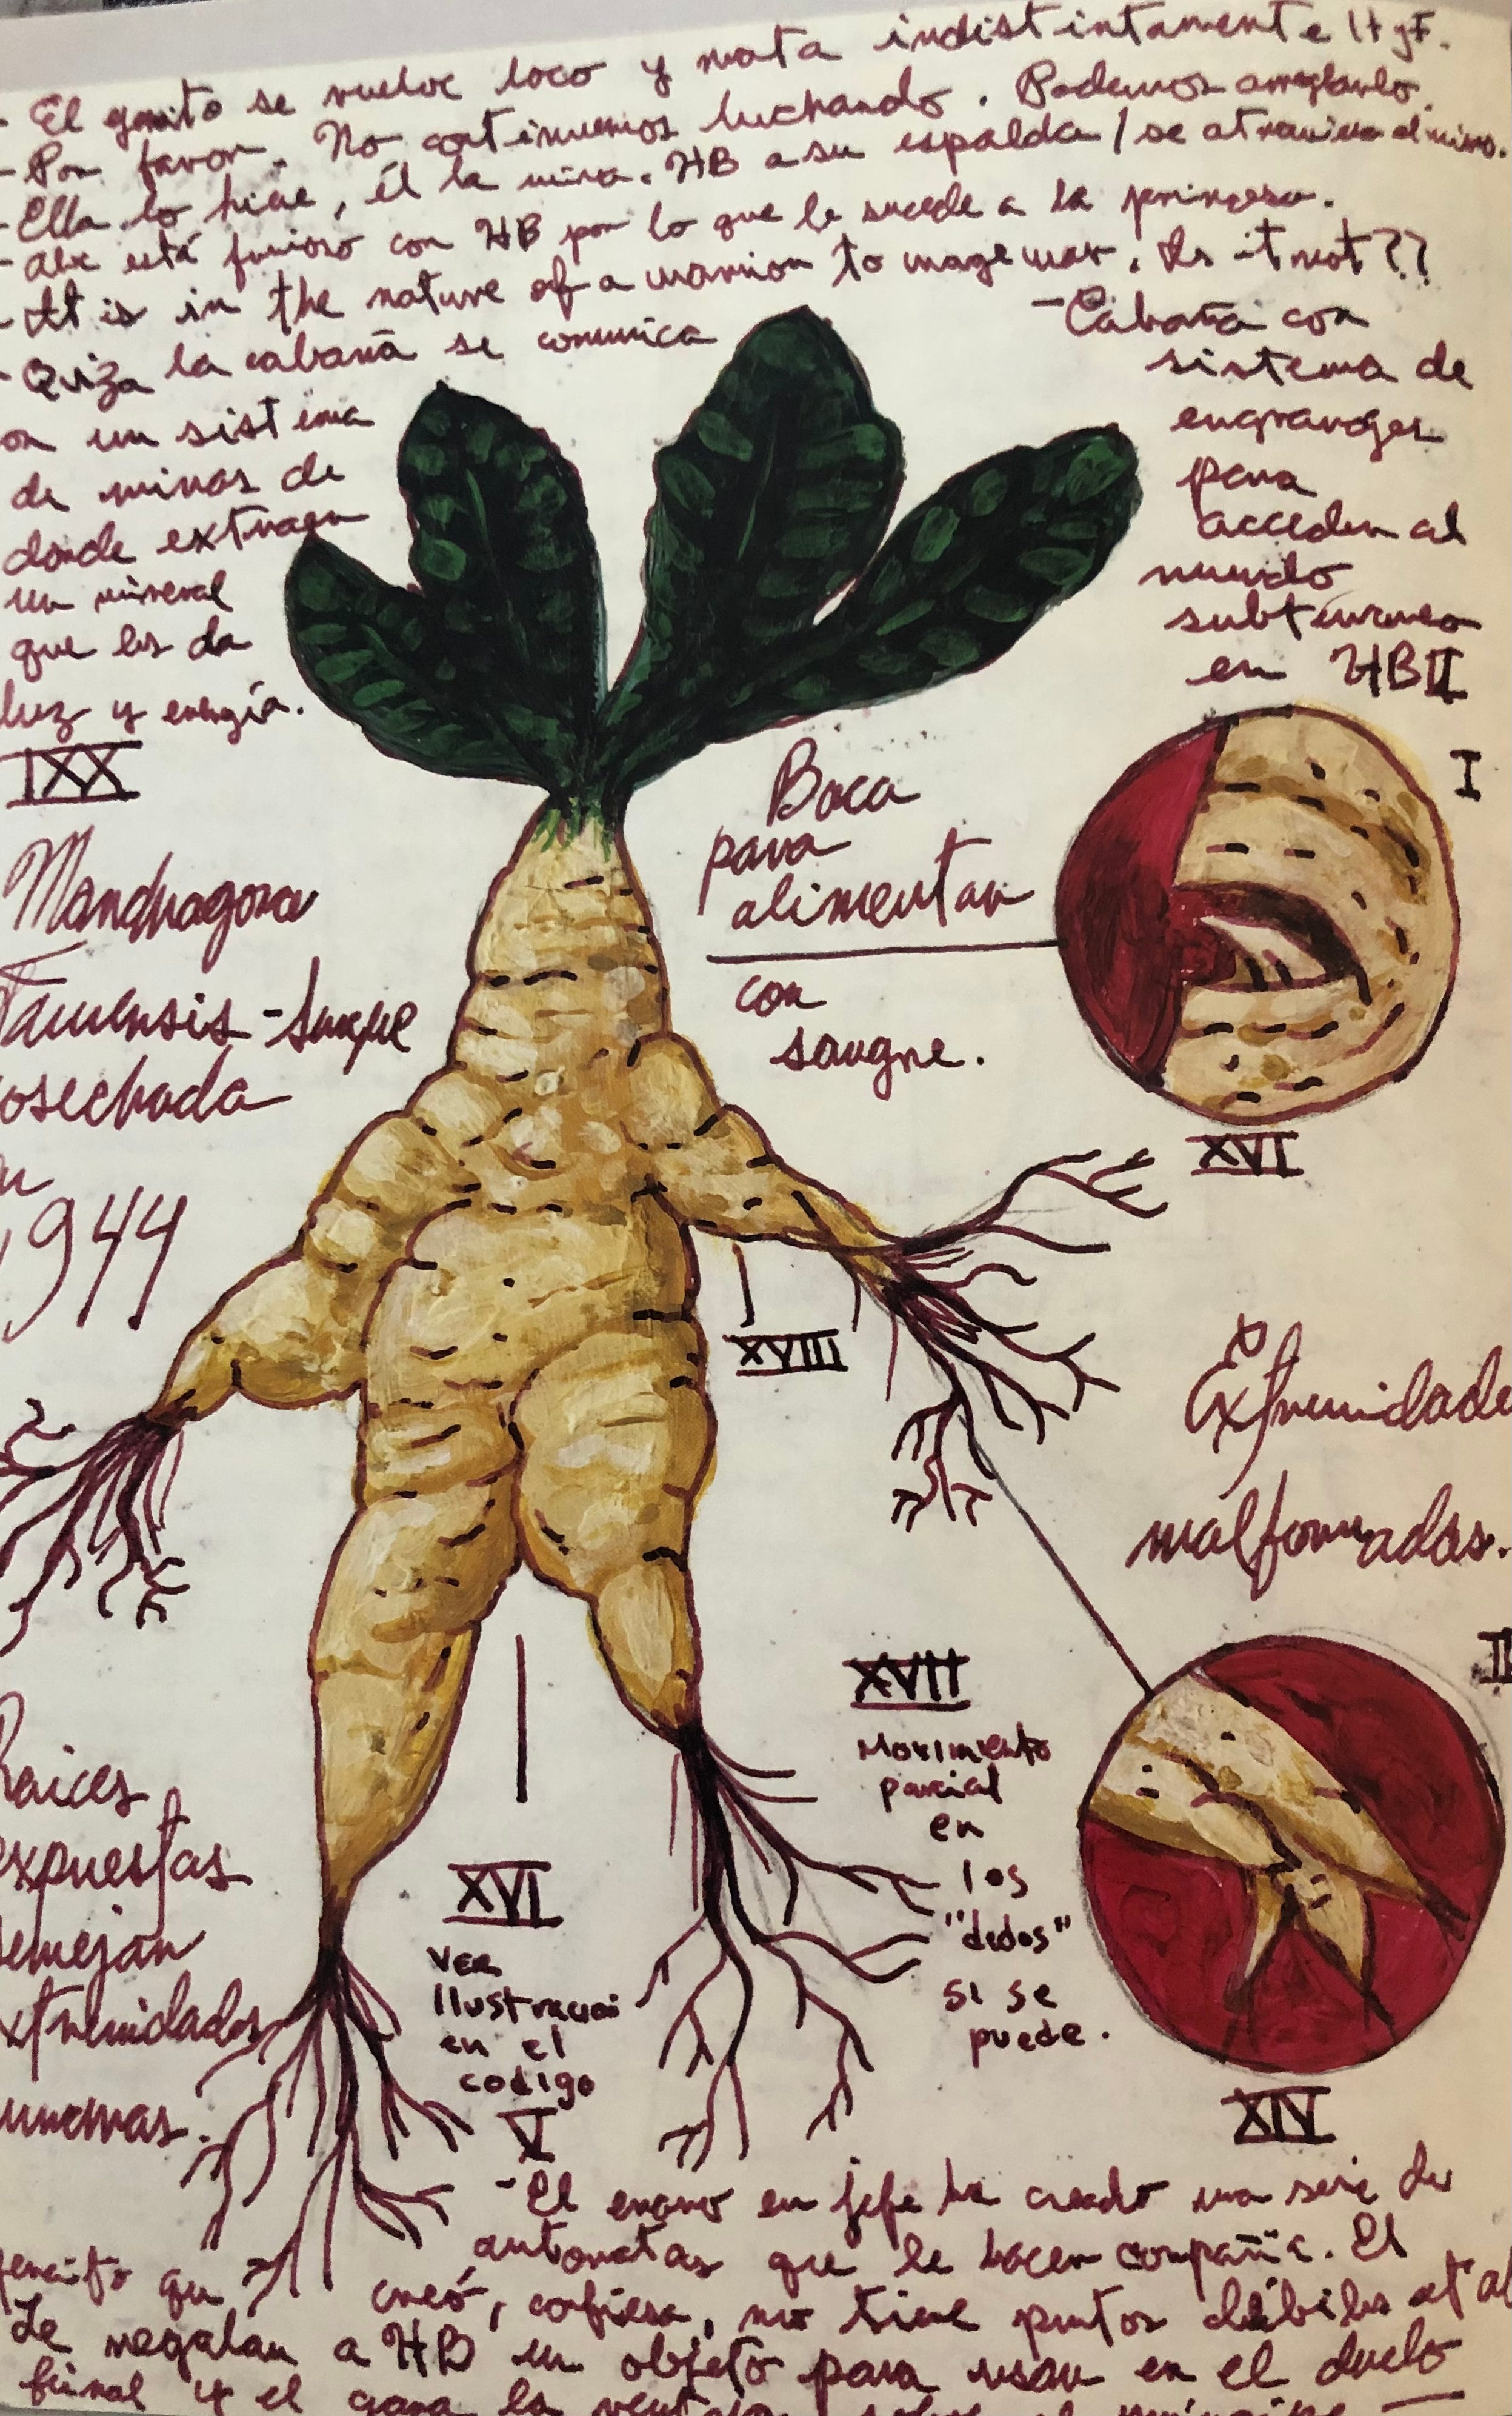 - El gomito se vuelve loco y mata indistintamente
- Por favor. No continuemos luchando. Podemos arreglarlo.
- Ella lo hiere, él la mira. HB a su espalda / se atraviesa el mismo.
- Abe está furioso con HB por lo que le sucede a la princesa.
- It is in the nature of a warrior to wage war. Is it not??
- Quiza la cabaña se comunica
on un sistema
de minas de
donde extraen
un mineral
que les da
luz y energía.
- Cabaña con
sistema de
engranajes
para
acceder al
mundo
subterraneo
en HBII
IXX
Mandragora
osechada
1944
Boca
para
alimentar
con
sangre.
I
XVI
XVIII
Extremidade
malformadas.
Raices
expuestas
semejan
xtremidades
XVII
Movimiento
parcial
en
los
"dedos"
si se
puede.
XVI
Ver
Ilustracion
en el
codigo
V
XIV
- El enano en jefe ha creado una serie de
automatas que le hacen compañia. El
creó, confiesa, no tiene puntos débiles
Le regalan a HB un objeto para usar en el duelo
final y el gana la